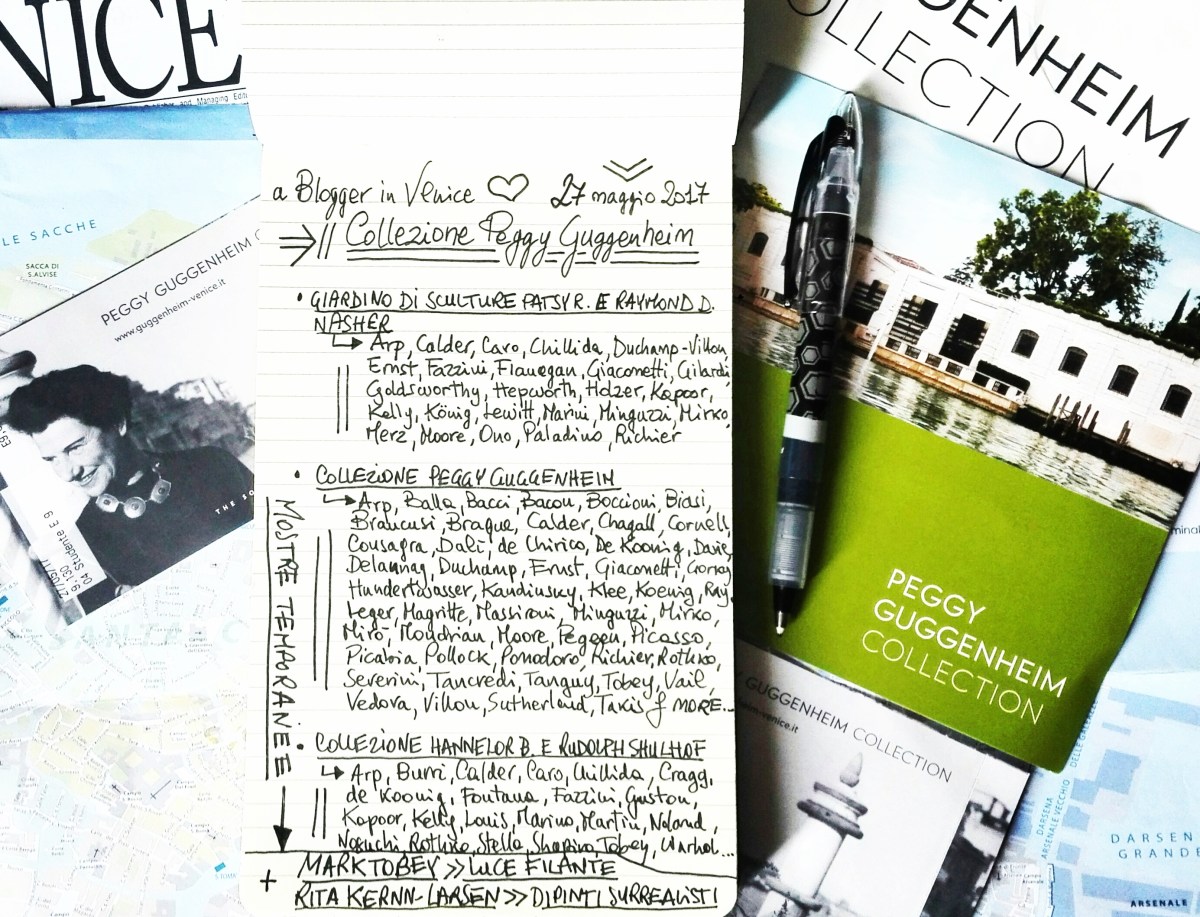 NICE
and Managing Edi
LE SACCHE
SACCA DI
S.ALVISE
PEGGY GUGGENHEIM C
www.guggenheim-venice.it
THE SO
04 Studente E 9
9/30
27/05/17
a Blogger in Venice ♡ 27 maggio 2017
⇒ || Collezione Peggy Guggenheim
• GIARDINO DI SCULTURE PATSY R. E RAYMOND D.
NASHER
↳ Arp, Calder, Caro, Chillida, Duchamp-Villon,
Ernst, Fazzini, Flanagan, Giacometti, Gilardi
Goldsworthy, Hepworth, Holzer, Kapoor,
Kelly, König, Lewitt, Marini, Minguzzi, Mirko,
Merz, Moore, Ono, Paladino, Richier
• COLLEZIONE PEGGY GUGGENHEIM
↳ Arp, Balla, Bacci, Bacon, Boccioni, Biasi,
Brancusi, Braque, Calder, Chagall, Cornell,
Consagra, Dalì, de Chirico, De Koonig, Davie,
Delaunay, Duchamp, Ernst, Giacometti,
Hundertwasser, Kandinsky, Klee, Koenig, Ray,
Leger, Magritte, Massironi, Minguzzi, Mirko,
Mirò, Mondrian, Moore, Pegeen, Picasso,
Picabia, Pollock, Pomodoro, Richier, Rothko,
Severini, Tancredi, Tanguy, Tobey, Vail,
Vedova, Villon, Sutherland, Takis & MORE...
• COLLEZIONE HANNELOR B. E RUDOLPH SHULHOF
↳ Arp, Burri, Calder, Caro, Chillida, Cragg,
de Koonig, Fontana, Fazzini, Guston,
Kapoor, Kelly, Louis, Marino, Martin, Noland,
Noguchi, Rothko, Stella, Shapiro, Tobey, Warhol...
MOSTRE TEMPORANEE
+ MARK TOBEY >> LUCE FILANTE
RITA KERNN-LARSEN >> DIPINTI SURREALISTI
GENHEIM
OLLECTION
PEGGY
GUGGENHEIM
COLLECTION
Y GUGGENHEIM COLLECTION
eim-venice.it
DARSENA
ARSENALE VECCHIO
DARSEN
GRANDE
ARSENALE